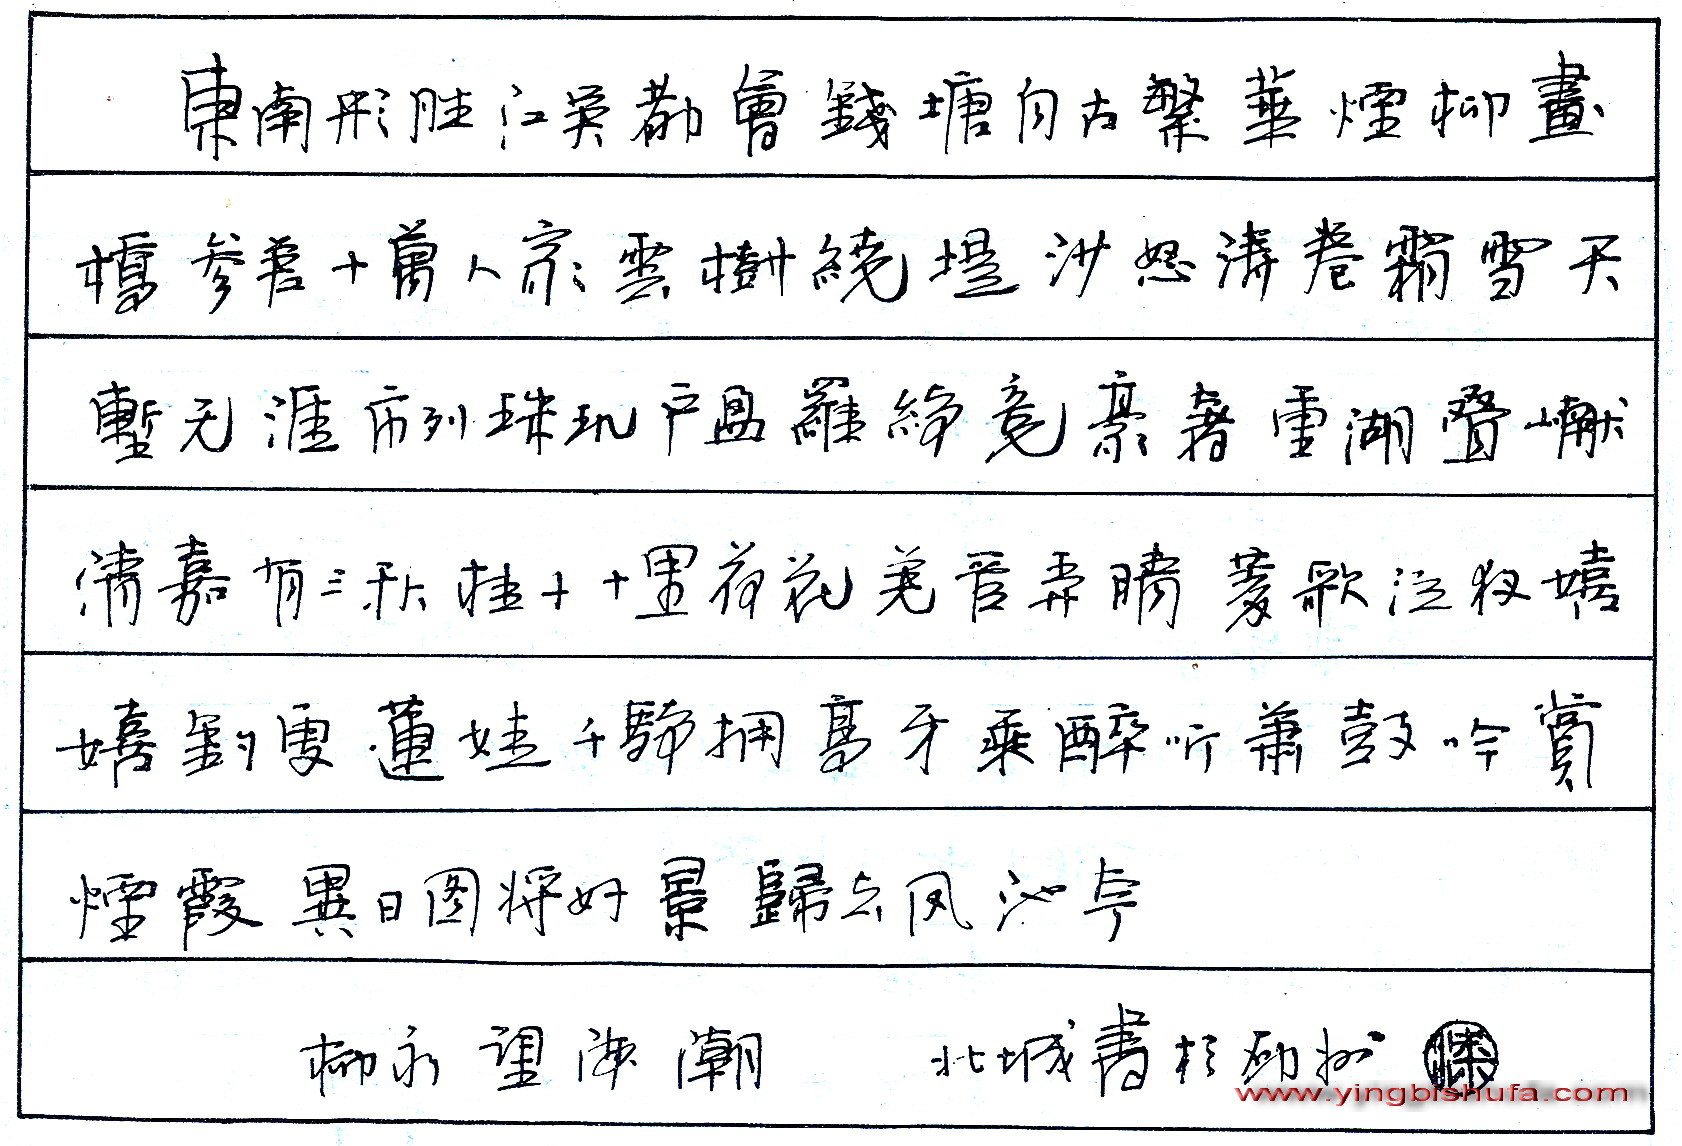 東南形胜江吴都會錢塘自古繁華煙柳畫
橋參差十萬人家雲樹繞堤沙怒濤卷霜雪天
塹无涯市列珠玑户盈羅綺竞豪奢重湖叠巘
清嘉有三秋桂十十里荷花羌管弄晴菱歌泛夜嬉
嬉釣叟蓮娃千騎拥高牙乘醉听萧鼓吟賞
煙霞異日图将好景歸去凤池夸
柳永望海潮 北城書於砀州
www.yingbishufa.com